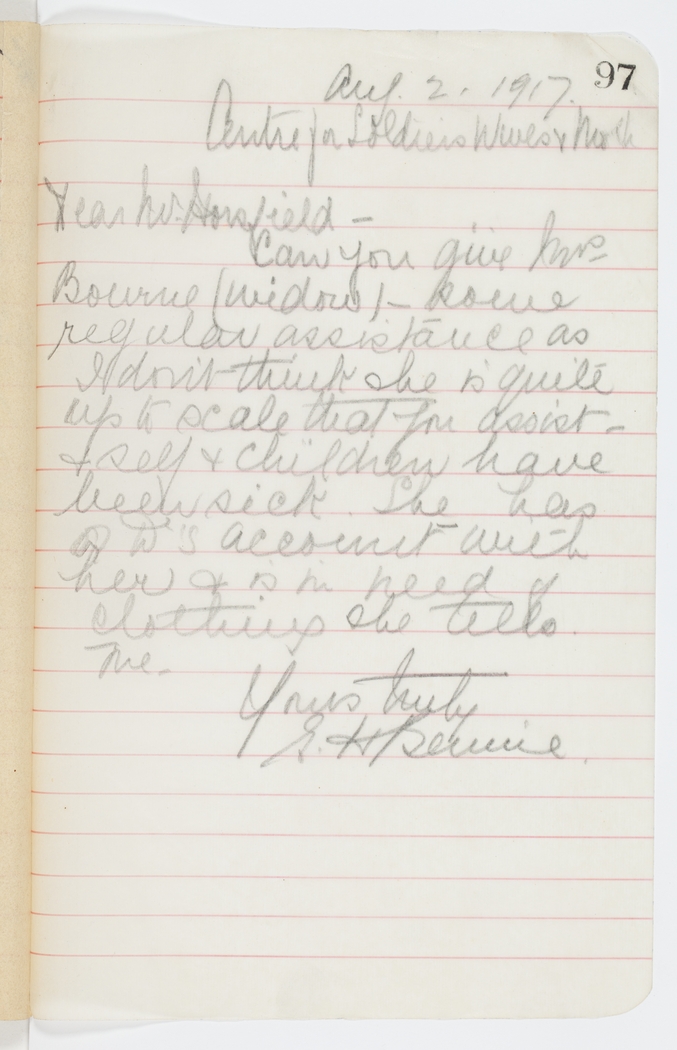 97
Aug. 2. 1917.
Centre for Soldiers Wives & Moth
Dear Mr. Horsfield -
Can you give Mrs
Bourne (widow) - some
regular assistance as
I don't think she is quite
up to scale that you assist -
& self & children have
been sick. She has
D's account with
her & is in need of
clothing she tells
me.
Yours truly
E. H. Bennie.